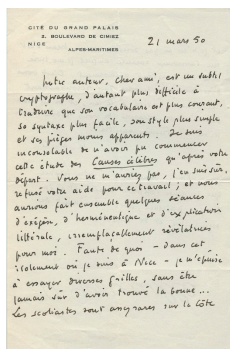 CITÉ DU GRAND PALAIS
2, BOULEVARD DE CIMIEZ
NICE
ALPES-MARITIMES
21 mars 50
Notre auteur, cher ami, est un subtil
cryptographe, d'autant plus difficile à
traduire que son vocabulaire est plus courant,
sa syntaxe plus facile, son style plus simple
et ses pièges moins apparents. Je suis
inconsolable de n'avoir pu commencer
cette étude des Causes célèbres qu'après votre
départ. Vous ne m'auriez pas, j'en suis sûr,
refusé votre aide pour ce travail ; et nous
aurions fait ensemble quelques séances
d'exégèse, d'herméneutique et d'explication
littérale, irremplaçablement révélatrices
pour moi. Faute de quoi – dans cet
isolement où je suis à Nice – je m'épuise
à essayer diverses grilles, sans être
jamais sûr d'avoir trouvé la bonne...
Les scoliastes sont assez rares sur la Côte